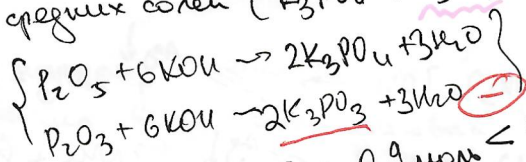 средних солей (K₃PO
P₂O₅ + 6KOH → 2K₃PO₄ + 3H₂O
P₂O₃ + 6KOH → 2K₃PO₃ + 3H₂O −
0,9 моль <